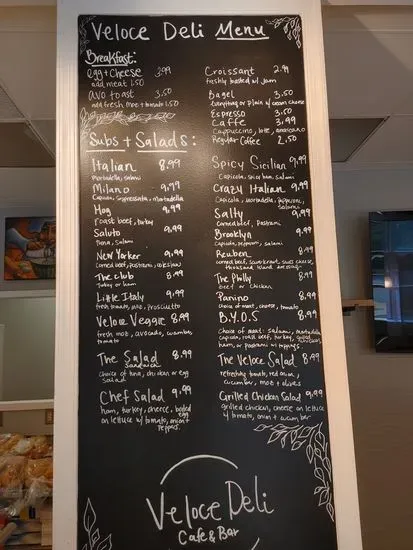 Veloce Deli Menu
Breakfast:
egg + cheese 3.99
add meat 1.50
avo toast 3.50
add fresh moz + tomato 1.50
Croissant 2.99
freshly toasted w/ jam
Bagel 3.50
Everything or plain w/ cream cheese
Espresso 3.50
Caffe 3.99
Cappuccino, latte, americano
Regular Coffee 2.50
Subs + Salads:
Italian 8.99
Mortadella, salami
Milano 9.99
Capicola, Soppressata, Mortadella
Hog 9.99
roast beef, turkey
Saluto 9.99
salami
New Yorker 9.99
Corned beef, Pastrami, coleslaw
The Club 8.99
Turkey or ham
Little Italy 9.99
fresh tomato, moz, Prosciutto
Veloce Veggie 8.99
fresh moz, avocado, cucumber,
tomato
The Salad 8.99
Sandwich
Choice of tuna, chicken or egg
salad
Chef Salad 9.99
ham, turkey, cheese, boiled egg
on lettuce w/ tomato, onion +
peppers.
Spicy Sicilian 9.99
Capicola, spicy ham, salami
Crazy Italian 9.99
Capicola, Mortadella, pepperoni,
Salami
Salty 9.99
Corned beef, Pastrami
Brooklyn 9.99
Capicola, pepperoni, salami
Reuben 8.99
corned beef, sauerkraut, swiss cheese,
thousand island dressing
The Philly 8.99
beef or chicken
Panino 8.99
choice of meat, cheese, tomato
B.Y.O.S 8.99
Choice of meat: salami, mortadella
capicola, roast beef, turkey,
ham, or pastrami w/ toppings
The Veloce Salad 8.99
refreshing tomato, red onion,
cucumber, moz + olives
Grilled Chicken Salad 9.99
grilled chicken, cheese on lettuce
w/ tomato, onion + cucumber
Veloce Deli
Cafe & Bar